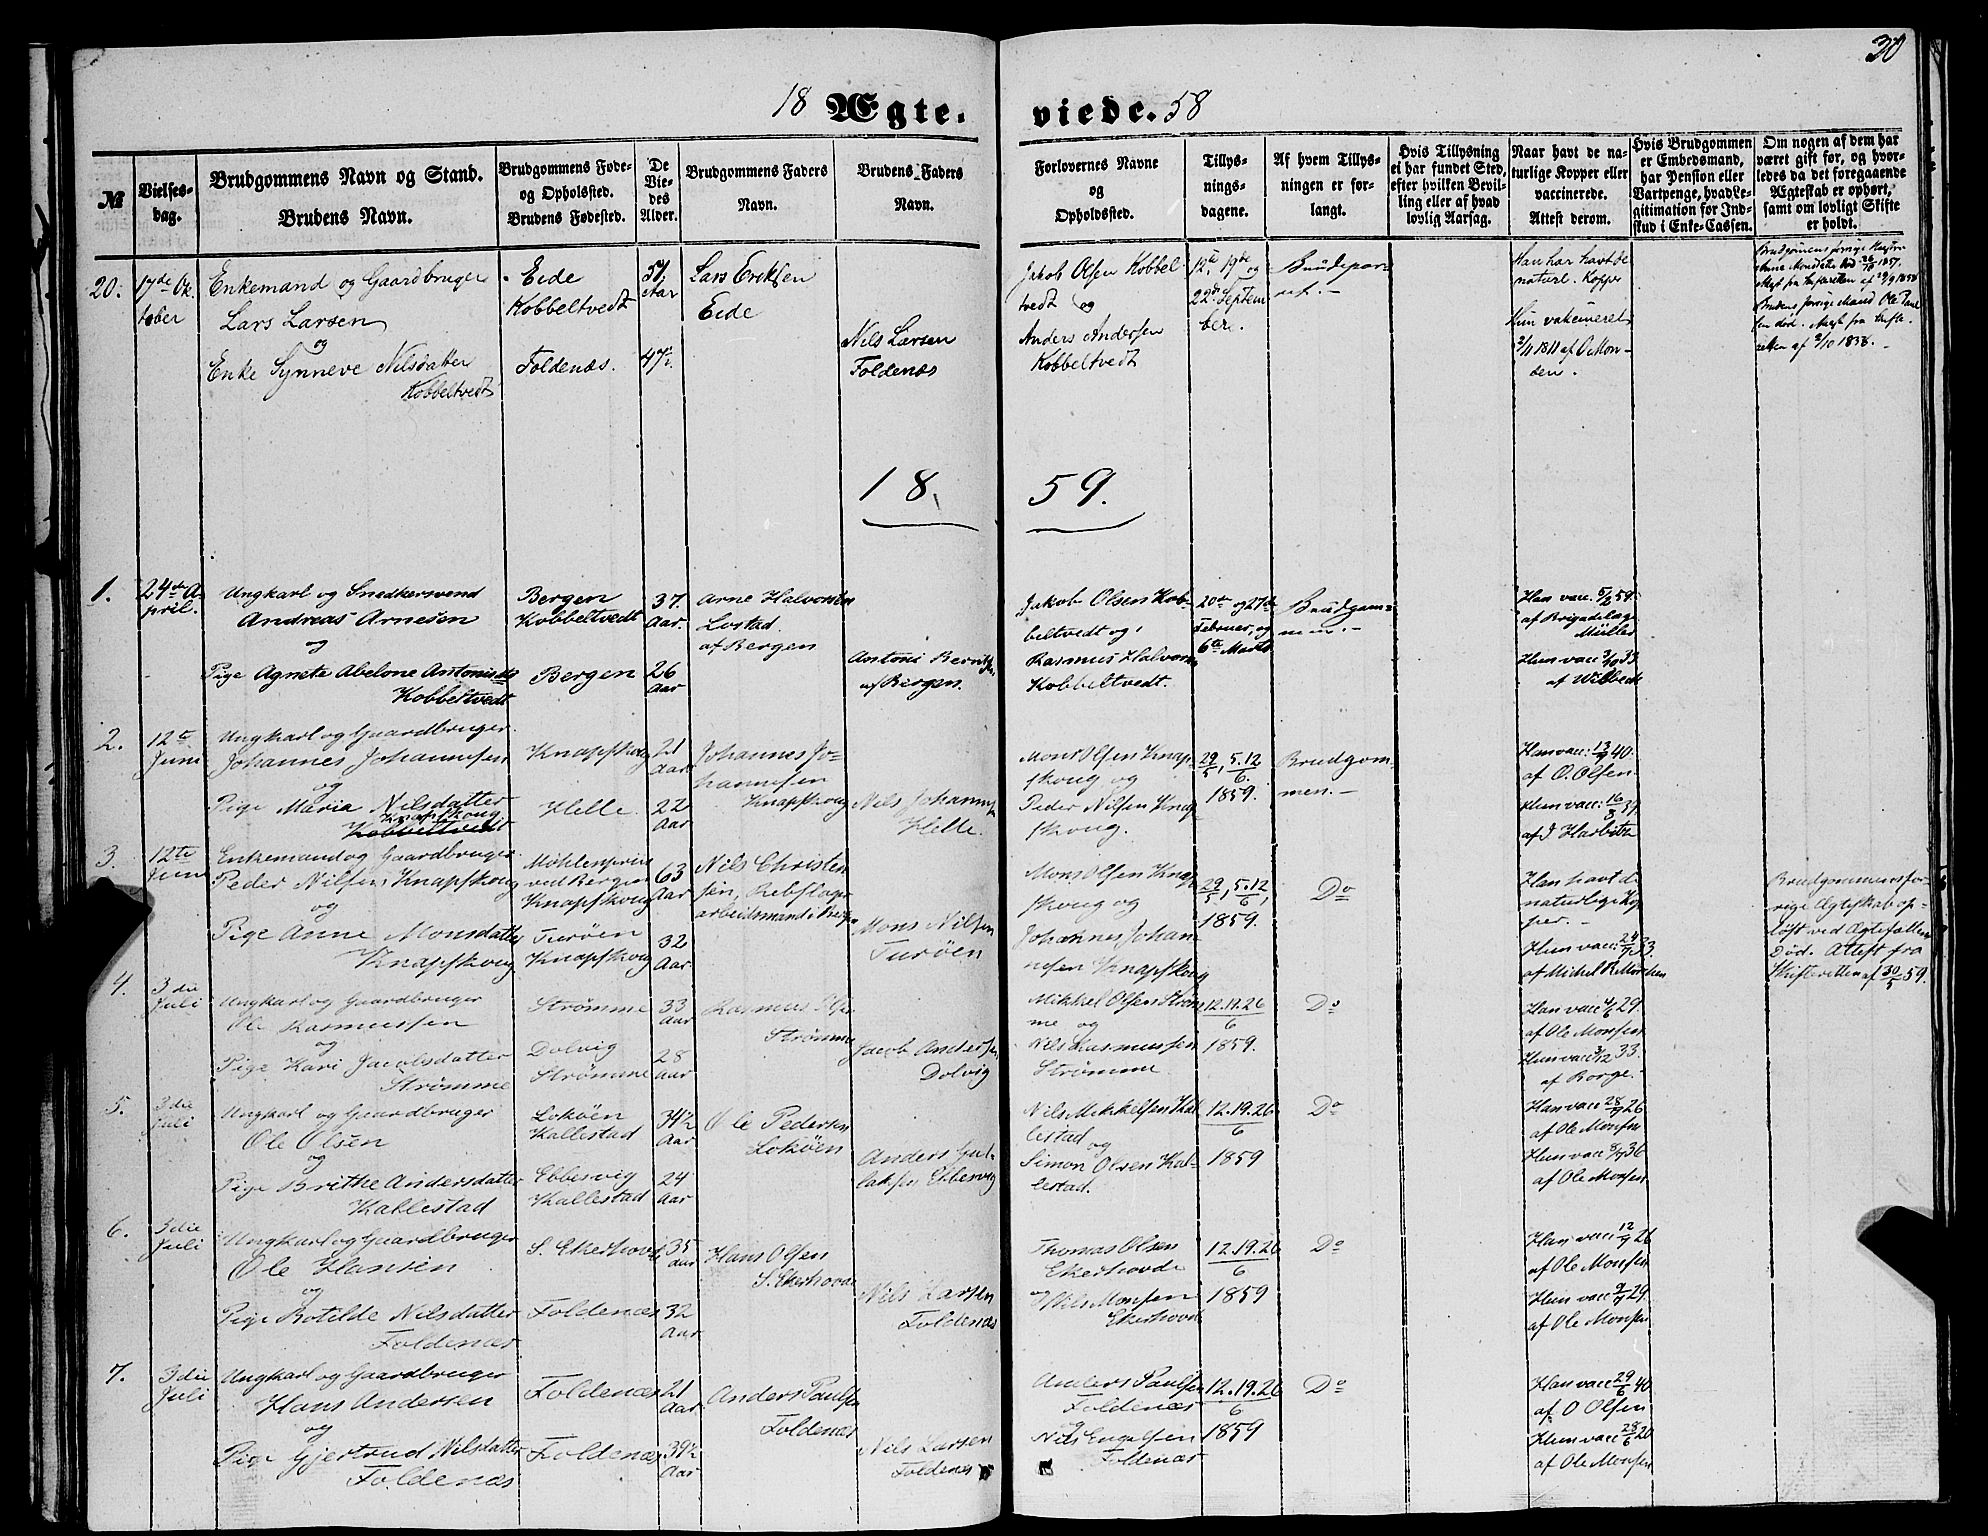 30
18 Ægte. viede. 58
№
Vielses-
dag.
Brudgommens Navn og Stand.
Brudens Navn.
Brudgommens Føde-
og Opholdssted.
Brudens Fødested.
De
Vie-
des
Alder.
Brudgommens Faders
Navn.
Brudens Faders
Navn.
Forlovernes Navne
og
Opholdssted.
Tillys-
nings-
dagene.
Af hvem Tillys-
ningen er for-
langt.
Hvis Tillysning
ei har fundet Sted,
efter hvilken Bevil-
ling eller af hvad
lovlig Aarsag.
Naar havt de na-
turlige Kopper eller
vaccinerede.
Attest derom.
Hvis Brudgommen
er Embedsmand,
har Pension eller
Vartpenge, hvad Le-
gitimation for Ind-
skud i Enke-Cassen.
Om nogen af dem har
været gift før, og hvor-
ledes da det foregaaende
Ægteskab er ophørt,
samt om lovligt Skifte
er holdt.
20.
17de Ok-
tober
Enkemand og Gaardbruger
Lars Larsen
og
Enke Synneve Nilsdatter
Kobbeltvedt
Eide
Kobbeltvedt
Foldenæs.
57.
Aar
47.
Lars Eriksen
Eide
Nils Larsen
Foldenæs
Jakob Olsen Kobbel
tvedt og
Anders Andersen
Kobbeltvedt
12te 19de og
22de Septem
ber.
Brudepar-
ret.
Han har havt de
naturl. Kopper
Hun vakcineret
2/11 1811 af O. Mon-
sen.
18. 59.
1.
24de A-
pril.
Ungkarl og Snedkersvend
Andreas Arnesen
og
Pige Agnete Abelone Antonisd.
Kobbeltvedt
Bergen
Kobbeltvedt
Bergen
37.
Aar.
26
Aar
Arne Halvorsen
Lostad
af Bergen
Antoni Berntsen
af Bergen.
Jakob Olsen Kob-
beltvedt og
Rasmus Halvors.
Kobbeltvedt.
20de og 27de
Februar, og
6te Marts
Brudgom-
men.
Han vacc. 5/2 59
af Brigadelæge
Müller
Hun vacc 3/10 33
af Wilbech
2.
12te
Juni
Ungkarl og Gaardbruger.
Johannes Johannesen
og
Pige Maria Nilsdatter
Knapskoug
Kobbeltvedt
Knapskoug
Helle.
21
Aar
22
Aar
Johannes Jo-
hannesen
Knapskoug
Nils Johannes
Helle.
Mons Olsen Knap-
skoug og
Peder Nilsen Knap
skoug.
29/5, 5.12/6.
1859.
Brudgom-
men.
Han vac: 13/9 40.
af O. Olsen.
Hun vacc: 16/8 39.
af J Harbitz
3.
12te
Juni
Enkemand og Gaardbruger.
Peder Nilsen Knapskoug
og
Pige Anne Monsdatter
Knapskoug
Møhlenpriis
ved Bergen
Knapskoug
Turøen
Knapskoug
63
Aar
32
Aar.
Nils Christen
sen, Rebslager
arbeidsmand i Bergen
Mons Nilsen
Turøen
Mons Olsen Knap
skoug og
Johannes Johan-
nesen Knapskoug
29/5, 5.12/6,
1859.
Do
Han havt de
naturlige Kop
per.
Hun vacc: 24/9 33.
af Michel R. Mörchen
Brudgommens for-
rige Ægteskab op-
løst ved Ægtefællens
Død. Attest fra
Skifteretten af 30/5 59.
4.
3die
Juli
Ungkarl og Gaardbruger
Ole Rasmussen
og
Pige Kari Jacobsdatter
Strømme
Strømme
Dolvig
Strømme
33
Aar
28
Aar
Rasmus Olsen
Strømme
Jacob Andersen
Dolvig
Mikkel Olsen Strøm
me og
Nils Rasmussen
Strømme
12.19.26/6
1859.
Do
Han vacc 4/6 29.
af Ole Monsen
Hun vacc 3/12 33.
af Borge.
5.
3die
Juli
Ungkarl og Gaardbruger
Ole Olsen
og
Pige Brithe Andersdatter
Kallestad
Lokøen
Kallestad
Ebbesvig
Kallestad
34½
Aar
24
Aar
Ole Pedersen
Lokøen
Anders Gul-
laksen Ebbesvig
Nils Mikkelsen Kal
lestad
og
Simon Olsen Kal-
lestad.
12.19.26/6
1859
Do
Han vacc 28/9 26
af Ole Monsen
Hun vacc 8/9 36
af Ole Monsen
6.
3die
Juli
Ungkarl og Gaardbruger
Ole Hansen
og
Pige Botilde Nilsdatter
Foldenæs
S. Ekerhovde
Foldenæs
35
Aar
32
Aar
Hans Olsen
S. Ekerhovde
Nils Larsen
Foldenæs
Thomas Olsen
Ekerhovde
og
Nils Monsen
Ekerhovde
12.19.26/6
1859
Do
Han vacc 12/9 26
af Ole Monsen
Hun vacc 9/9 29.
af Ole Monsen
7.
3die
Juli
Ungkarl og Gaardbruger
Hans Andersen
og
Pige Gjertrud Nilsdatter
Foldenæs
Foldenæs
Foldenæs
21
Aar
39½
Aar
Anders Paulsen
Foldenæs
Nils Larsen
Foldenæs
Anders Paulsen
Foldenæs
og
Nils Engelsen
Foldenæs
12.19.26/6
1859
Do
Han vacc 29/6 40
af O Olsen
Hun vacc 28/6 20
af Ole Monsen